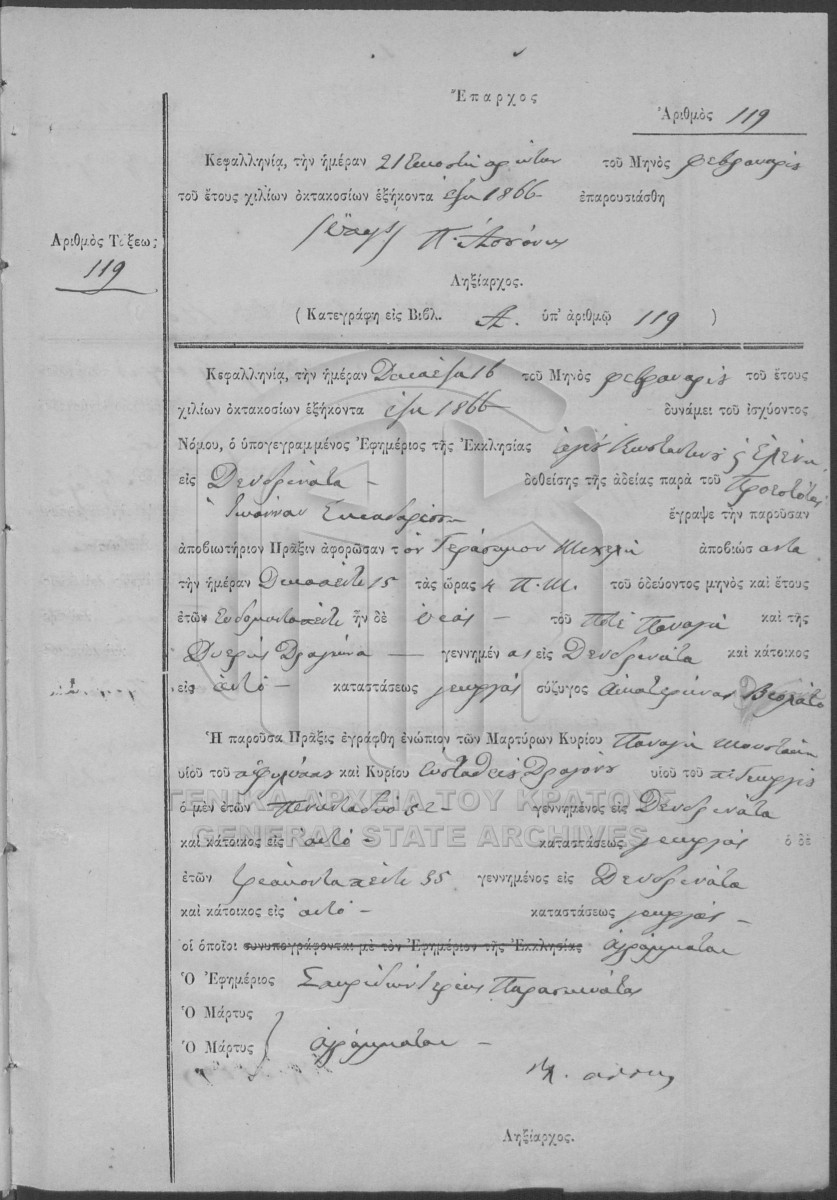 Ἔπαρχος
Ἀριθμὸς 119
Κεφαλληνίᾳ, τὴν ἡμέραν 21 τοῦ Μηνὸς
τοῦ ἔτους χιλίων ὀκτακοσίων ἑξήκοντα ἓξη 1866 ἐπαρουσιάσθη
Ἀριθμὸς Τάξεως
119
Ληξίαρχος.
( Κατεγράφη εἰς Βιβλ. Α. ὑπ' ἀριθμῷ 119 )
Κεφαλληνίᾳ, τὴν ἡμέραν Δεκαέξη 16 τοῦ Μηνὸς τοῦ ἔτους
χιλίων ὀκτακοσίων ἑξήκοντα ἓξη 1866 δυνάμει τοῦ ἰσχύοντος
Νόμου, ὁ ὑπογεγραμμένος Ἐφημέριος τῆς Ἐκκλησίας
εἰς Δενδρινάτα δοθείσης τῆς ἀδείας παρὰ τοῦ Προεστότος
ἔγραψε τὴν παροῦσαν
ἀποβιωτήριον Πρᾶξιν ἀφορῶσαν τὸν Γεράσιμον ἀποβιώσαντα
τὴν ἡμέραν 15 τὰς ὥρας 4 Π.Μ. τοῦ ὁδεύοντος μηνὸς καὶ ἔτους
ἐτῶν ἦν δὲ ὑιὸς τοῦ ποτὲ Παναγή καὶ τῆς
γεννημένας εἰς Δενδρινάτα καὶ κάτοικος
εἰς αὐτό καταστάσεως γεωργός σύζυγος Αἰκατερήνας
Ἡ παροῦσα Πρᾶξις ἐγράφθη ἐνώπιον τῶν Μαρτύρων Κυρίου Παναγή
υἱοῦ τοῦ καὶ Κυρίου υἱοῦ τοῦ
ὁ μὲν ἐτῶν 52 γεννημένος εἰς Δενδρινάτα
καὶ κάτοικος εἰς αὐτό καταστάσεως γεωργός ὁ δὲ
ἐτῶν τριάκοντα πέντε 35 γεννημένος εἰς Δενδρινάτα
καὶ κάτοικος εἰς αὐτό καταστάσεως γεωργός
οἱ ὁποῖοι συνυπογράφονται μὲ τὸν Ἐφημέριον τῆς Ἐκκλησίας ἀγράμματοι
Ὁ Ἐφημέριος Σπυρίδων Ἱερεύς
Ὁ Μάρτυς
Ὁ Μάρτυς ἀγράμματοι
Ληξίαρχος.
ΓΕΝΙΚΑ ΑΡΧΕΙΑ ΤΟΥ ΚΡΑΤΟΥΣ
GENERAL STATE ARCHIVES